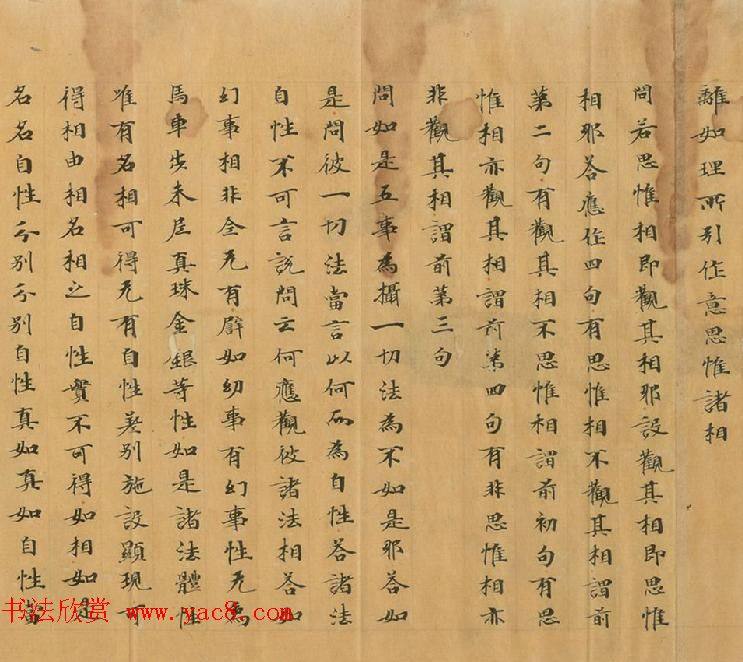 離如理所引作意思惟諸相
問若思惟相即觀其相耶設觀其相即思惟
相耶答應作四句有思惟相不觀其相謂前
第二句有觀其相不思惟相謂前初句有思
惟相亦觀其相謂前第四句有非思惟相亦
非觀其相謂前第三句
問如是五事為攝一切法為不如是耶答如
是問彼一切法當言以何而為自性答諸法
自性不可言說問云何應觀彼諸法相答如
幻事相非全无有辟如幻事有幻事性无象
馬車步末尼真珠金銀等性如是諸法體性
唯有名相可得无有自性差別施設顯現可
得相由相名相之自性實不可得如相如是
名名自性分別分別自性真如真如自性當
书法欣赏 www.yac8.com